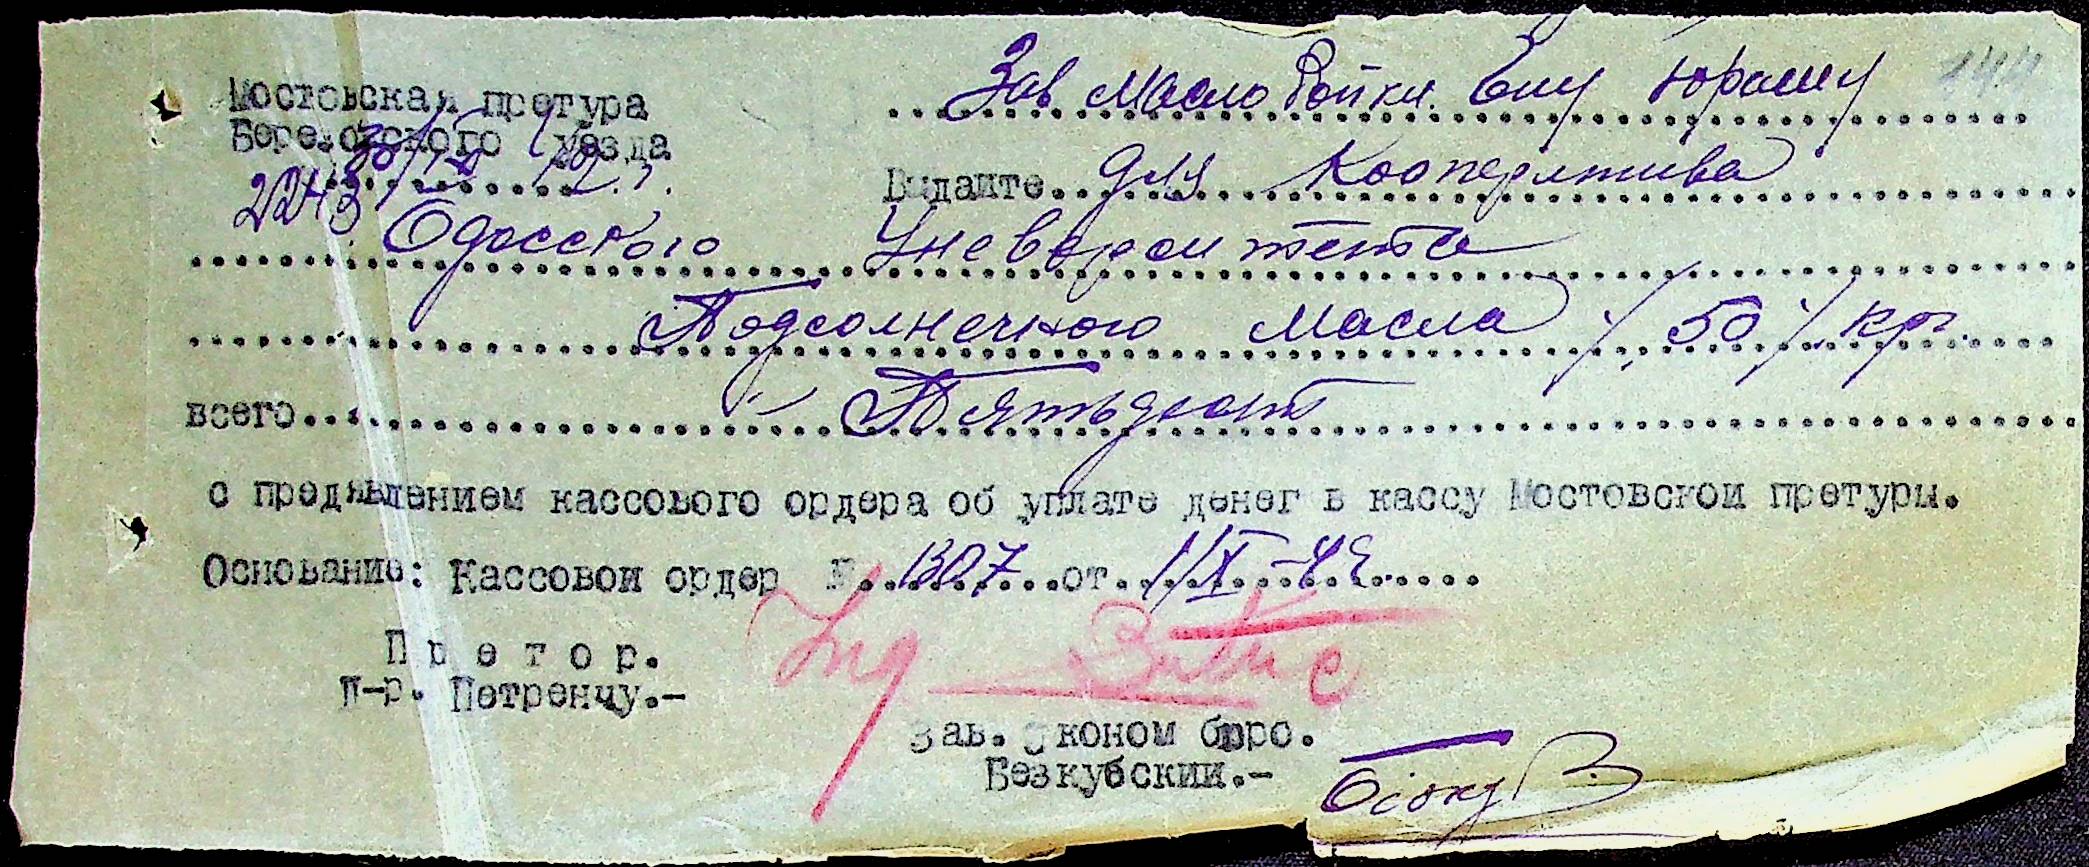 144
Мостовская претура
Зав Маслобойкл. Ену Юрашу
Березовского уезда
2243
Видайте для Кооператива
Одесского Университета
Подсолнечного Масла /50/ кгр.
всего Пятьдесят
с предявлением кассового ордера об уплате денег в кассу Мостовской претуры.
Основание: Кассовой ордер № 1307 от 1/X-42
Претор.
П-р. Петренчу.-
Ing
Зав. Эконом бюро.
Безкубский.-